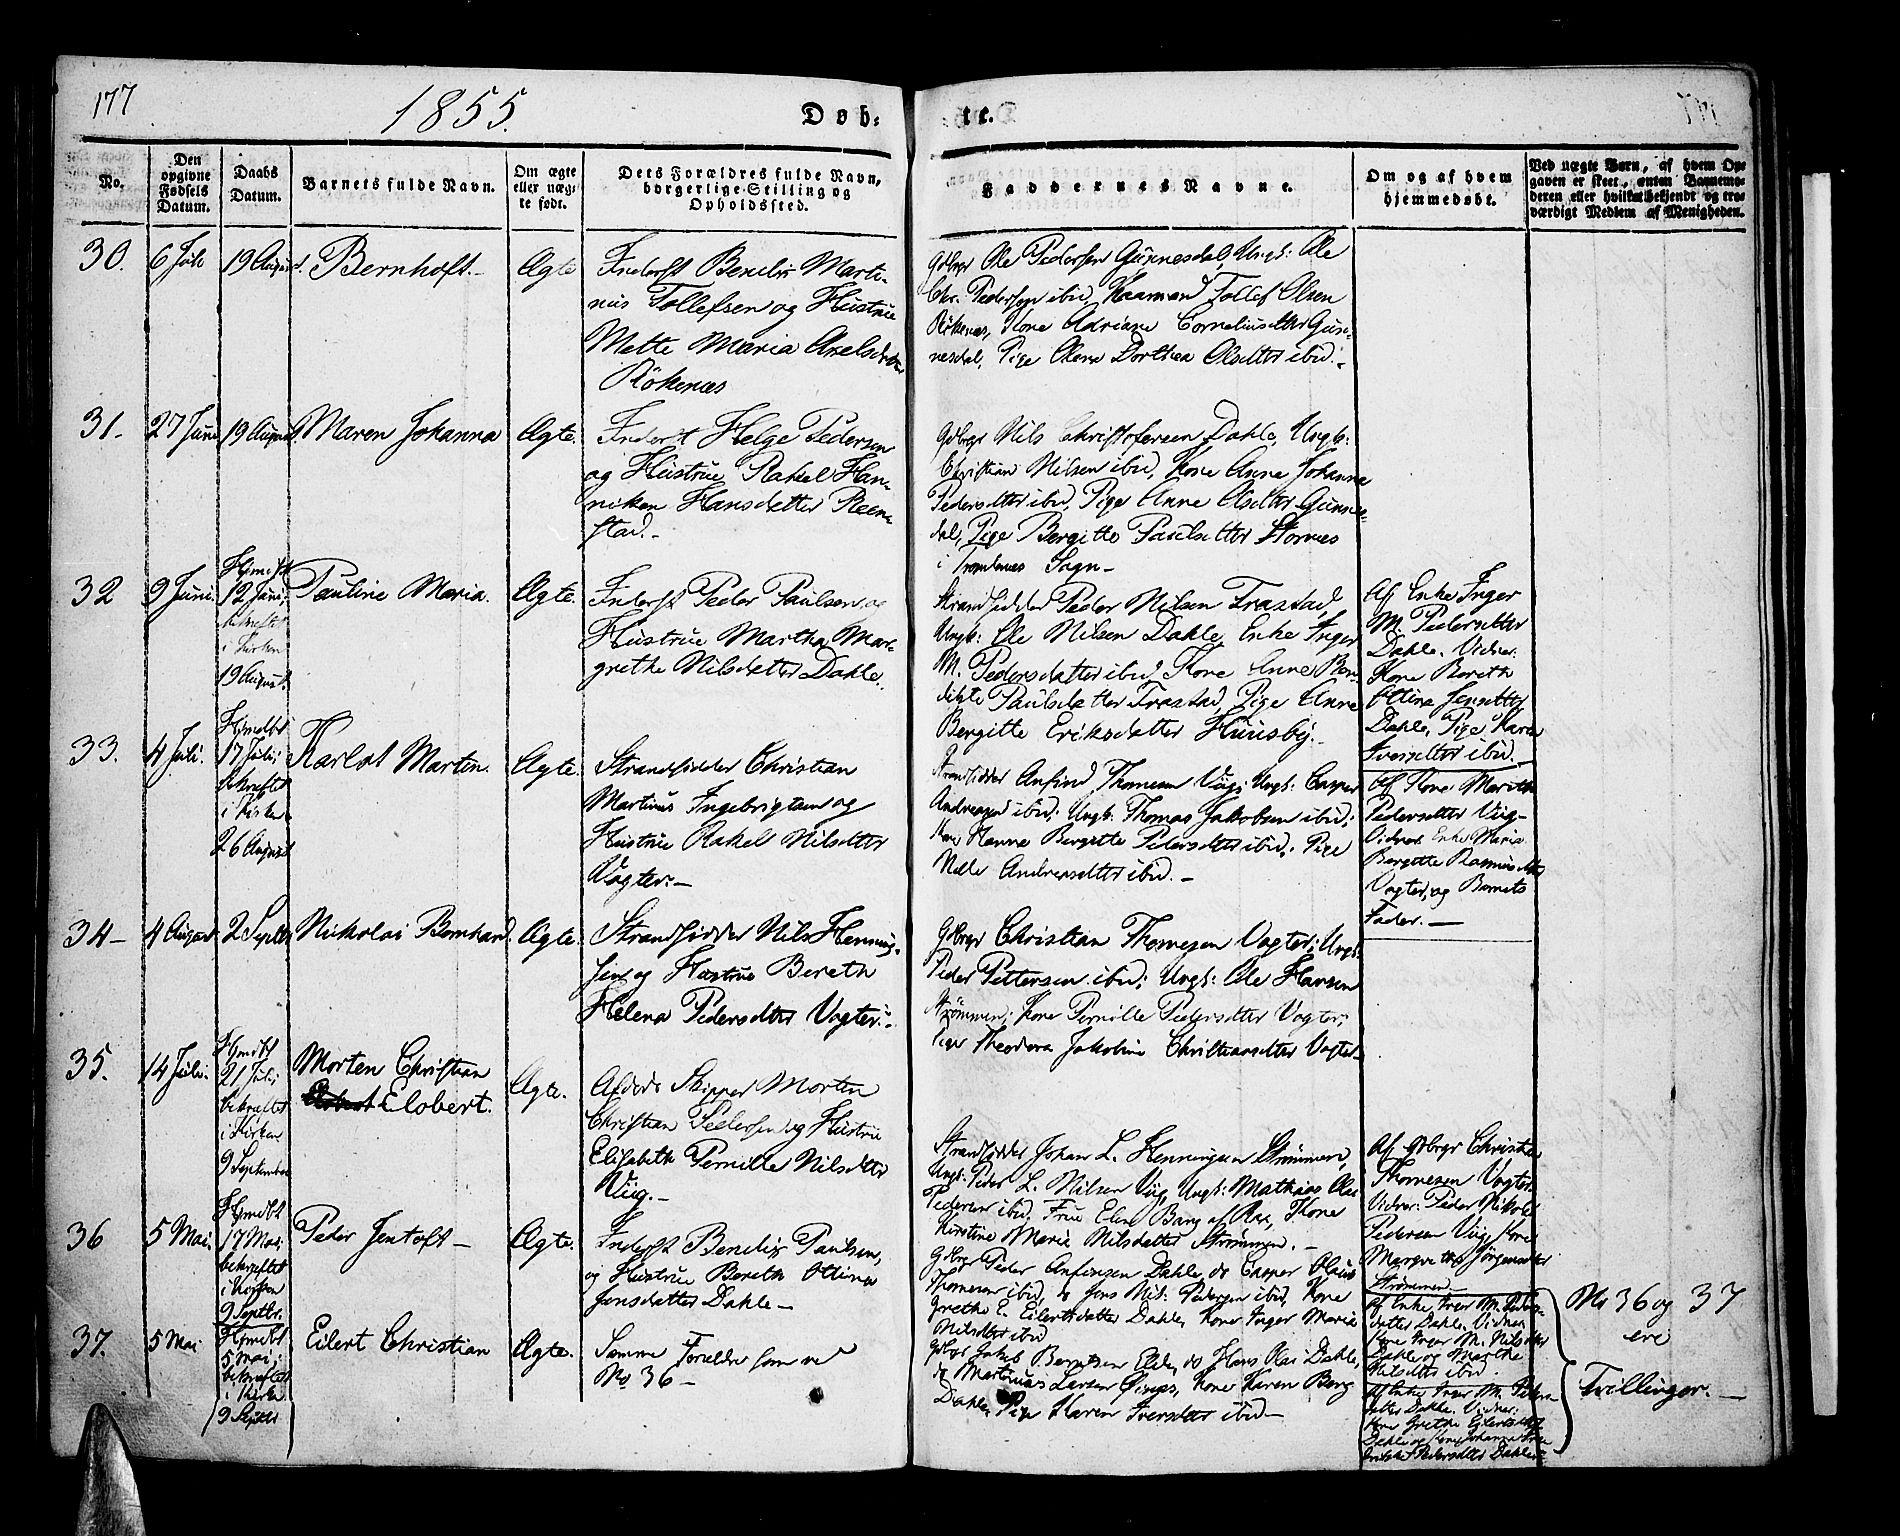 177
1855.
Døb-
te.
No.
Den opgivne Fødsels Datum.
Daabs Datum.
Barnets fulde Navn.
Om ægte eller uæg-te født.
Dets Forældres fulde Navn, borgerlige Stilling og Opholdssted.
Faddernes Navne.
Om og af hvem hjemmedøbt.
Ved uægte Børn, af hvem Op-
gaven er skeet, enten Barnemo-
deren eller hvilket bekjendt og tro-
værdigt Medlem af Menigheden.
30.
6 Juli
19 August.
Bernhoft.-
Ægte
Inderst Bendix Marti-
nus Tollefsen og Hustrue
Mette Maria Axelsdatter
Rökenæs
Gdbrgr Ole Pedersen Gunnesdal, Ungk: Ole
Chr. Pedersen ibid, Kaarmand Tollef Olsen
Rökenæs, Kone Adriane Corneliusdtter Gun-
nesdal, Pige Olena Dorthea Olsdtter ibid.-
31.
27 Juni
19 August
Maren Johanna
Ægte.
Inderst Helge Pedersen
og Hustrue Rakel Han-
niken Hansdatter Reen-
stad.-
Gdbrgr Nils Christofersen Dahle, Ungk:
Christian Nilsen ibid, Kone Anne Johanna
Pedersdtter ibid, Pige Anne Olsdtter Gunnes-
dal, Pige Bergitte Paulsdtter Stornæs
i Trondenæs Sogn-
32
9 Juni.
Hjmdbt
12 Juni;
bekræftet
i Kirken
19 August.
Pauline Maria.
Ægte.
Inderst Peder Paulsen og
Hustrue Martha Mar-
grethe Nilsdatter Dahle.
Strandsidder Peder Nilsen Trastad,
Ungk: Ole Nilsen Dahle, Enke Inger
M. Pedersdatter ibid, Kone Anne Ben-
dikte Paulsdatter Trastad, Pige Anne
Bergitte Eriksdatter Huusby.-
Af Enke Inger
M. Pedersdtter
Dahle. Vidner:
Kone Bereth
Ottina Jensdtter
Dahle, Pige Karen
Iversdtter ibid.
33.
4 Juli.
Hjmdbt
17 Juli;
bekræftet
i Kirken
26 August
Karlot Martin.
Ægte.
Strandsidder Christian
Martinus Ingebrigtsen og
Hustrue Rakel Nilsdtter
Vogter.-
Strandsidder Anfind Thomesen Viig; Ungk: Casper
Andreasen ibid; Ungk: Thomas Jakobsen ibid;
Kone Hanna Bergitte Pedersdtter ibid; Pige
Nella Andreasdtter ibid.-
Af Kone Marith
Pedersdtter Viig-
Vidner Enke Maria
Bergitte Rasmusdtter
Vogter, og Barnets
Fader.-
34-
4 August
2 Septbr
Nickolai Bernhard.
Ægte.
Strandsidder Nils Henning-
sen og Hustrue Bereth
Helena Pedersdtter Vogter.-
Gdbrgr Christian Thomesen Vogter; Ungk:
Peder Pettersen ibid; Ungk: Ole Hansen
Strömmen; Kone Pernille Pedersdtter Vogter;
Pige Theodora Jakobine Christiansdtter Vogter.
35.
14 Juli.
Hjmdbt
21 Juli;
bekræftet
i Kirken
9 September
Morten Christian
Elobert.
Ægte.
Afdøde Skipper Morten
Christian Pedersen og Hustrue
Elisabeth Pernille Nilsdtter
Viig.-
Strandsidder Johan L. Henningsen Strömmen,
Ungk: Peder L. Nilsen Viig, Ungk: Mathias Olai
Pedersen ibid, Frue Elen Bang af Røe, Kone
Kirstine Marie Nilsdatter Strömmen.-
Af Gdbrgr Christian
Thomesen Vogter.
Vidner: Peder Nikolai
Pedersen Viig, Kone
Margrethe Jörgensdtter
Strömmen
36
5 Mai.
Hjmdbt
17 Mai:
bekræftet
i Kirken
9 Septbr.
Peder Jentoft-
Ægte.
Inderst Bendix Paulsen,
og Hustrue Bereth Ottina
Jensdatter Dahle-
Gdbrgr Peder Anfinsen Dahle, do Casper Olaus
Thomesen ibid, do Jens Nil: Pedersen ibid, Kone
Grethe E. Eilertsdatter Dahle, Kone Inger Marie
Nilsdtter ibid
Af Enke Inger M. Peders-
datter Dahle. Vidner:
Kone Inger M. Nilsdtter
Dahle og Marthe
Nilsdtter ibid.
No 36 og 37
ere
Tvillinger.-
37.
5 Mai
Hjmdbt
5 Mai;
bekræftet
i Kirken
9 Septbr
Eilert Christian
Ægte.
Samme Forældre som ved
No 36-
Gdbgr Jakob Berntsen Elde, do Hans Olai Dahle,
do Martinus Larsen Øinæs, Kone Karen Berg
Dahle, Pige Karen Iversdtter ibid-
Af Enke Inger M. Peders-
datter Dahle. Vidner:
Kone Grethe Eilertsdtter
Dahle og Kone Johanna
Pedersdtter Dahle